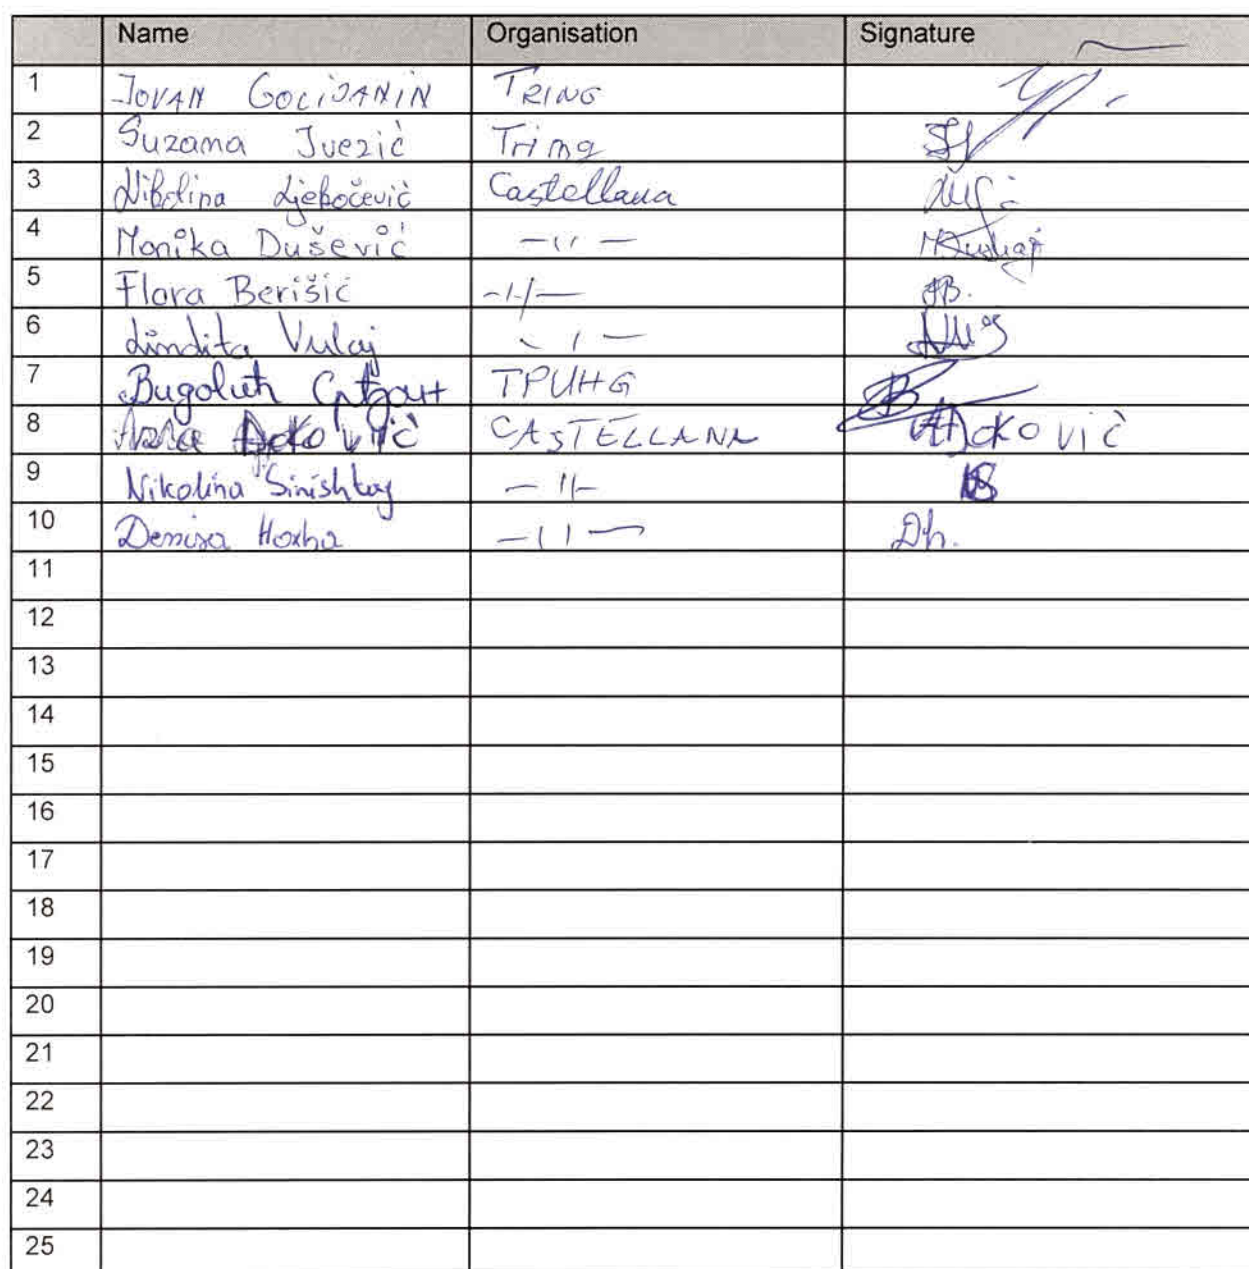 Name Organisation Signature
1 JOVAN GOCIJANIN TRING
2 Suzana Ivezić Tring
3 Nikolina Ljekočević Castellana
4 Monika Dušević -"-
5 Flora Berišić -"- FB.
6 Lindita Vulaj -"-
7 TPUHG
8 CASTELLANA Đoković
9 Nikolina Sinishtaj -"- NS
10 Denisa Hoxha -"- Dh.
11
12
13
14
15
16
17
18
19
20
21
22
23
24
25